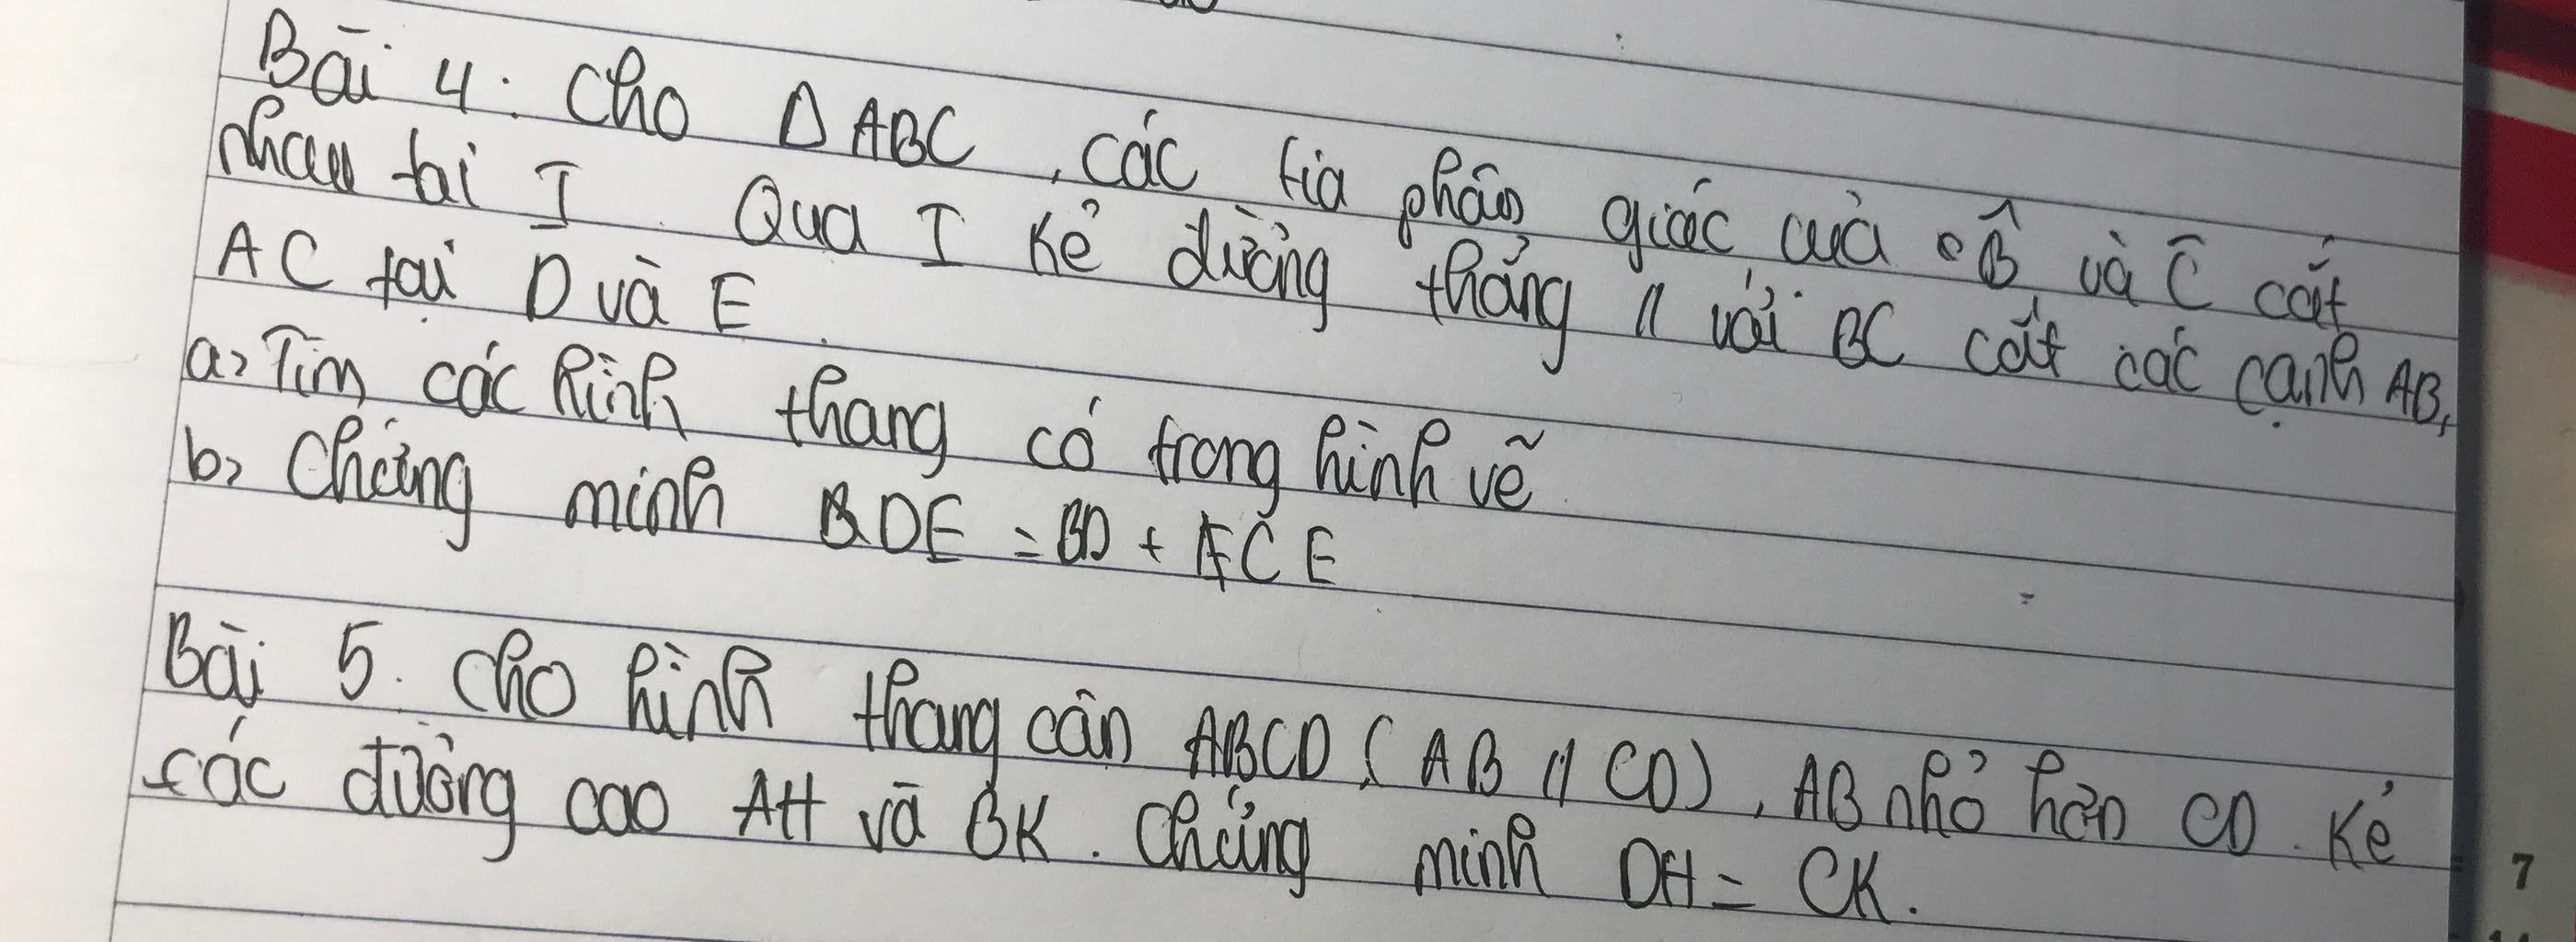 Bài 4 : Cho Δ ABC , các tia phân giác của B̂ và Ĉ cắt
nhau tại I . Qua I kẻ đường thẳng // với BC cắt các cạnh AB,
AC tại D và E .
a, Tìm các hình thang có trong hình vẽ
b, Chứng minh DE = BD + CE
Bài 5 . Cho hình thang cân ABCD ( AB // CD ) , AB nhỏ hơn CD . Kẻ
các đường cao AH và BK . Chứng minh DH = CK .
7